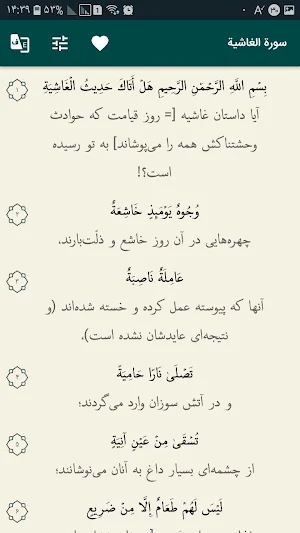 ۱۴:۳۹ ۵۳%
سورة الغاشية
بِسْمِ اللَّهِ الرَّحْمَٰنِ الرَّحِيمِ هَلْ أَتَاكَ حَدِيثُ الْغَاشِيَةِ
۱
آیا داستان غاشیه [= روز قیامت که حوادث
وحشتناکش همه را می‌پوشاند] به تو رسیده
است؟!
وُجُوهٌ يَوْمَئِذٍ خَاشِعَةٌ
۲
چهره‌هایی در آن روز خاشع و ذلّت‌بارند،
عَامِلَةٌ نَاصِبَةٌ
۳
آنها که پیوسته عمل کرده و خسته شده‌اند (و
نتیجه‌ای عایدشان نشده است)،
تَصْلَىٰ نَارًا حَامِيَةً
۴
و در آتش سوزان وارد می‌گردند؛
تُسْقَىٰ مِنْ عَيْنٍ آنِيَةٍ
۵
از چشمه‌ای بسیار داغ به آنان می‌نوشانند؛
لَيْسَ لَهُمْ طَعَامٌ إِلَّا مِنْ ضَرِيعٍ
۶